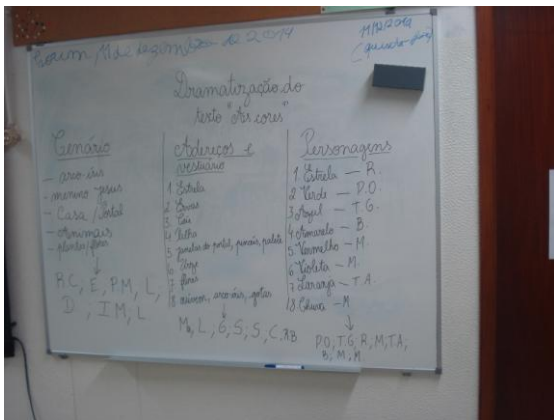 11 de dezembro de 2019
11/12/2019
(quarta-feira)
Dramatização do
texto "As cores"
Cenário
- arco-íris
- menino-jesus
- Casa / Portal
- Animais
- plantas/flores
R.C, E, P.M, L,
D, I.M, L.
Adereços e
vestuário
1 Estrela
2
3 Céu
4
5 janelas do portal,
6
7 flores
8 arco-íris, gotas
M, L, G, S, S, C, R.B
Personagens
1. Estrela — R.
2 Verde — P.O.
3 Azul — T.G.
4 Amarelo — B.
5 Vermelho — M.
6 Violeta — M.
7 Laranja — T.A.
8 Chuva — M
P.O, T.G, R, M, T.A,
B, M, M.